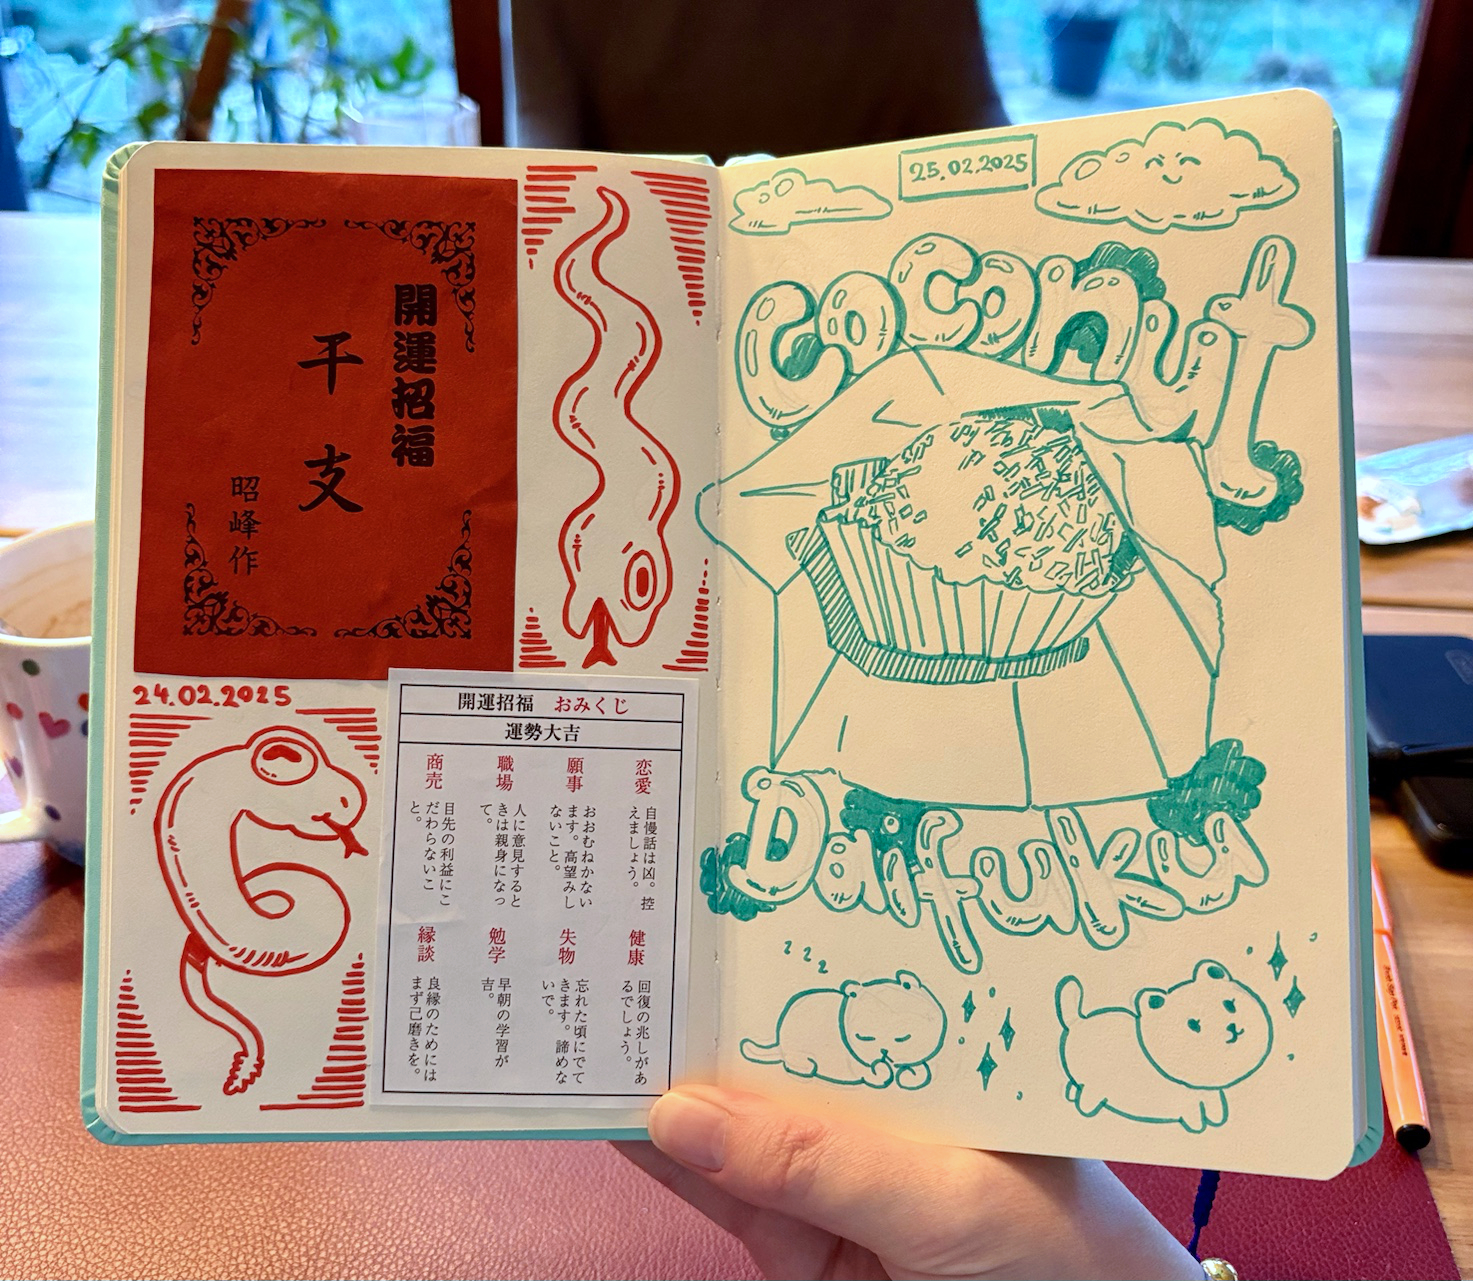 開運招福
干支
昭峰作
24.02.2025
開運招福 おみくじ
運勢大吉
恋愛
自慢話は凶。控
えましょう。
願事
おおむねかない
ます。高望みし
ないこと。
職場
人に意見すると
きは親身になっ
て。
商売
目先の利益にこ
だわらないこ
と。
健康
回復の兆しがあ
るでしょう。
失物
忘れた頃にでて
きます。諦めな
いで。
勉学
早朝の学習が
吉。
縁談
良縁のためには
まず己磨きを。
25.02.2025
Coconut
Daifuku
zzz